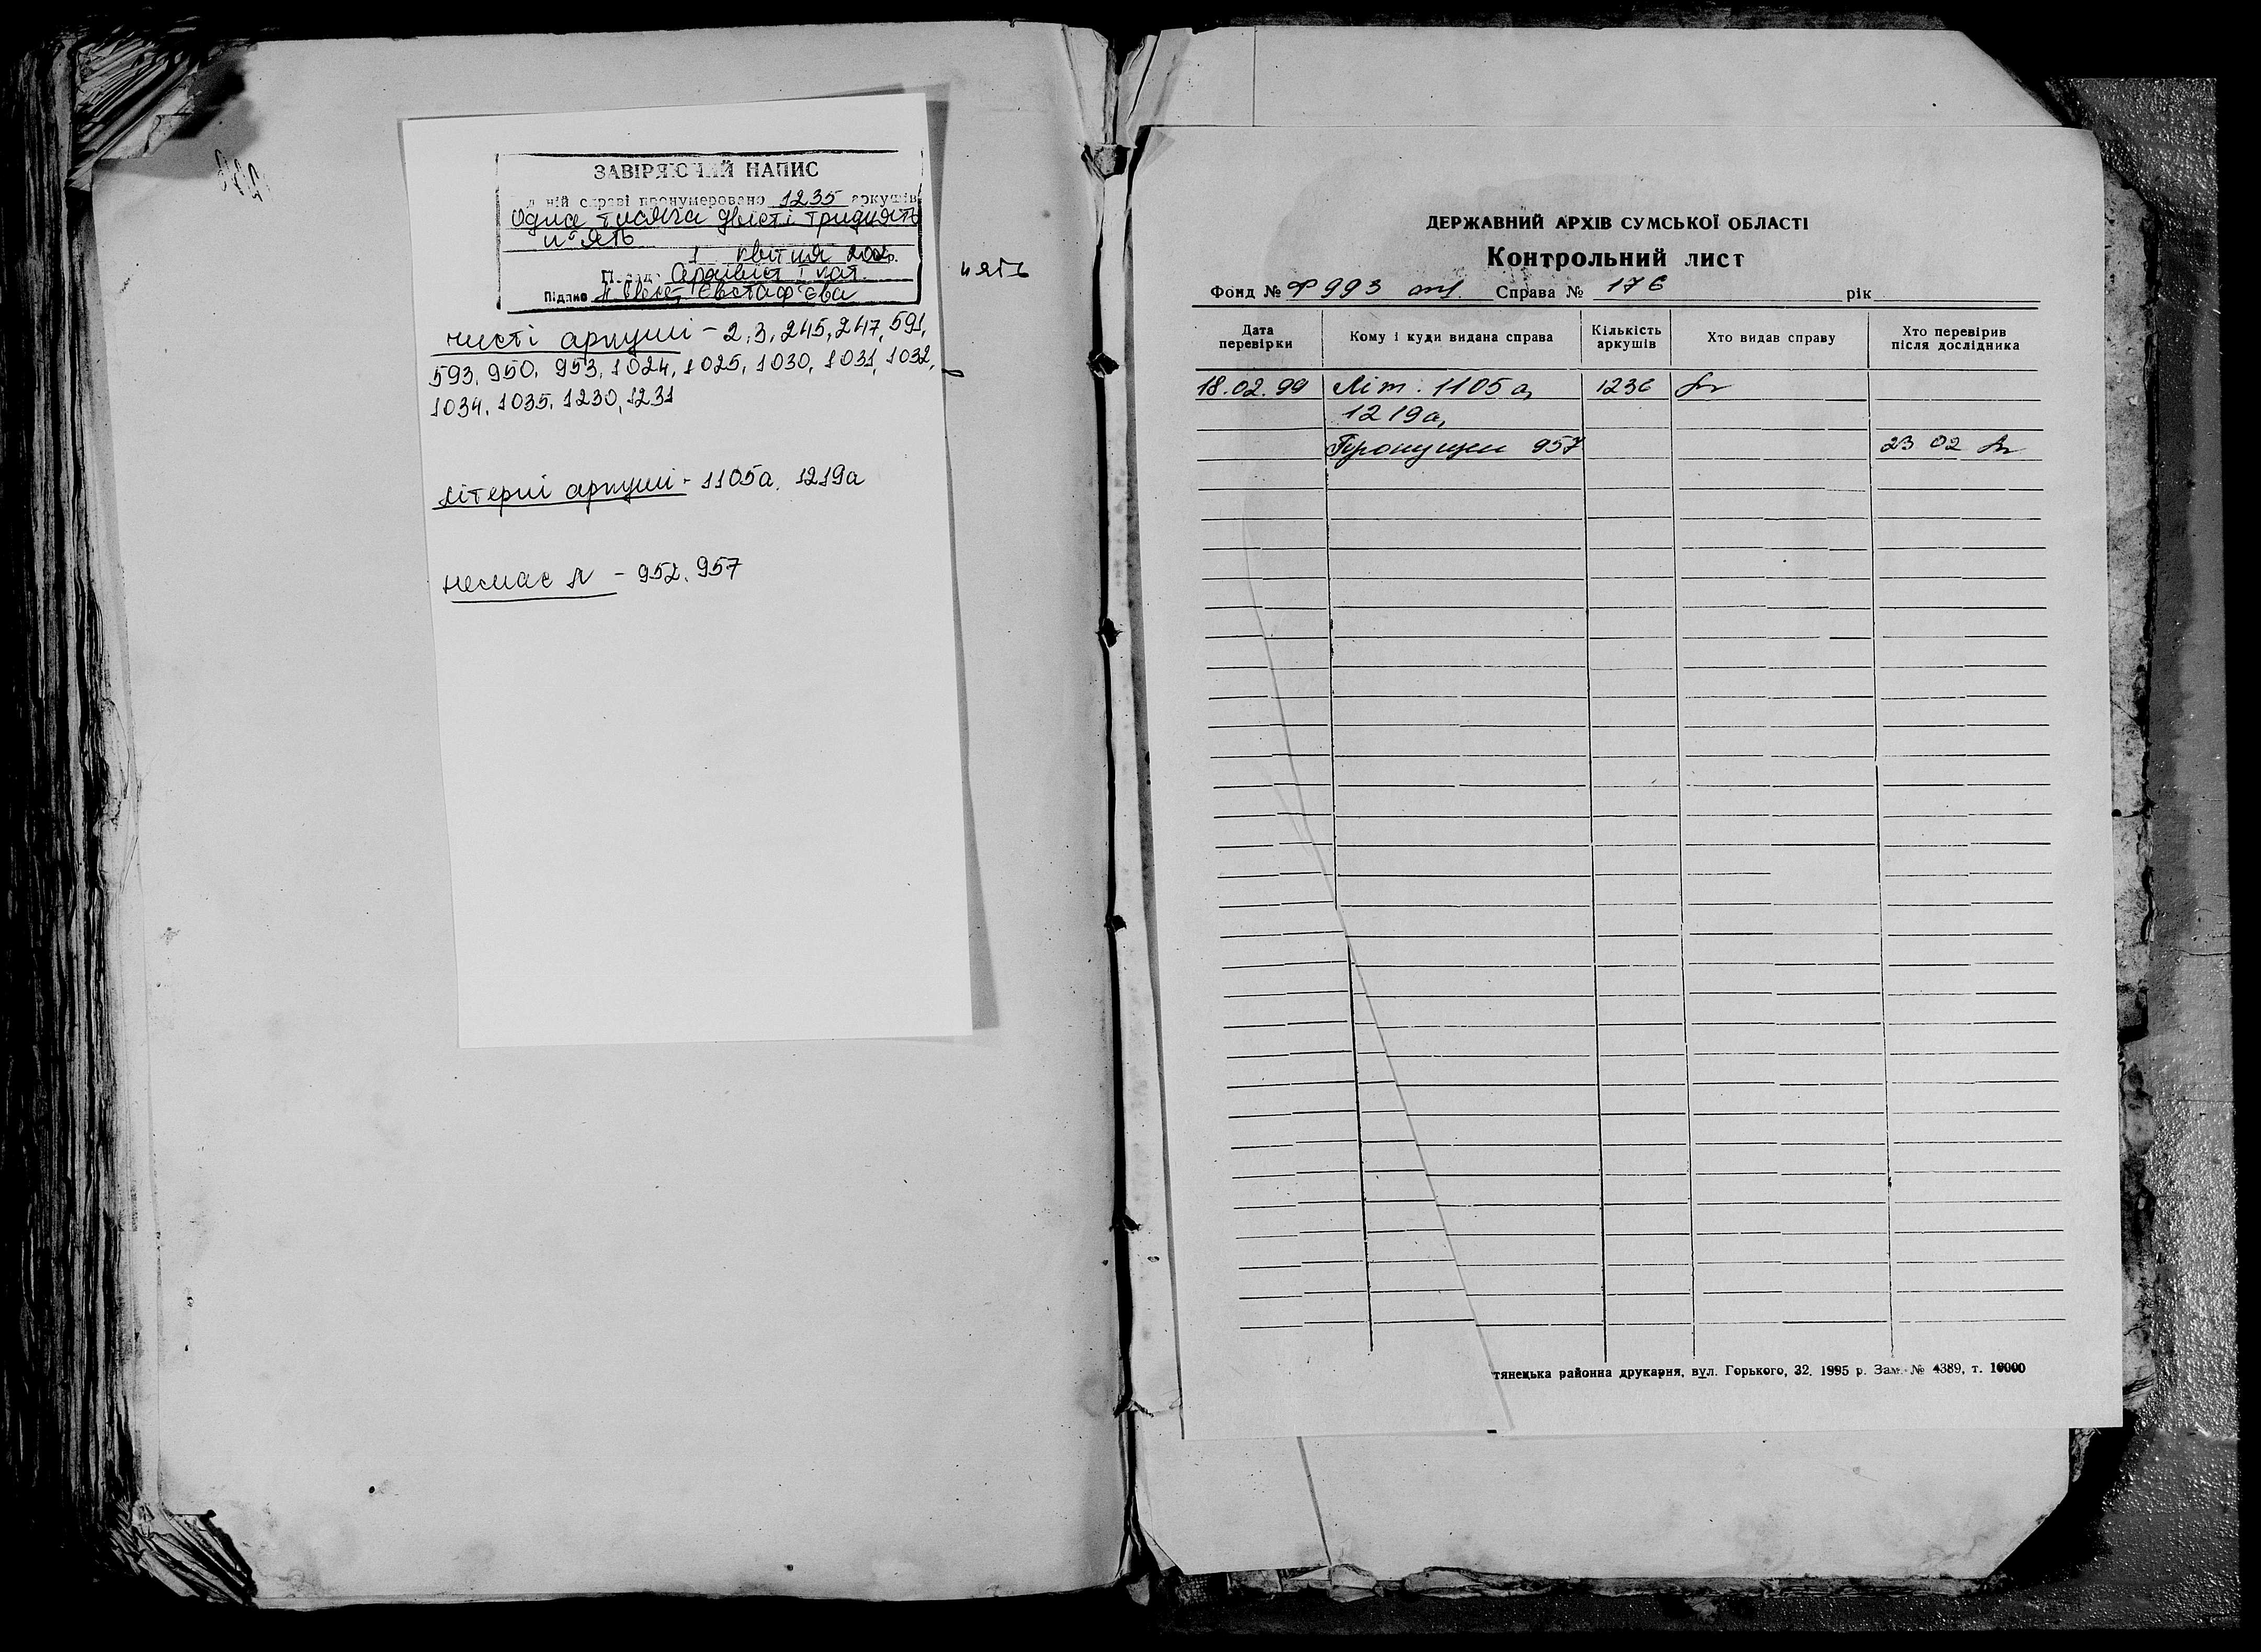 ЗАВІРЯЮЧИЙ НАПИС
ній справі пронумеровано 1235 аркушів
одна тисяча двісті тридцять
п'ять
1 квітня 2002р.
Посада Архівіст I кат.
Підпис Євстаф'єва
чисті аркуші – 2, 3, 245, 247, 591,
593, 950, 953, 1024, 1025, 1030, 1031, 1032,
1034, 1035, 1230, 1231
літерні аркуші - 1105а, 1219а
немає № – 952, 957
ДЕРЖАВНИЙ АРХІВ СУМСЬКОЇ ОБЛАСТІ
Контрольний лист
Фонд № Ф 993 оп1. Справа № 176 рік
Дата перевірки Кому і куди видана справа Кількість аркушів Хто видав справу Хто перевірив після дослідника
18.02.99 Літ. 1105 а, 1236
1219а,
Пропущен 957 23 02
тянецька районна друкарня, вул. Горького, 32. 1995 р. Зам. № 4389, т. 10000